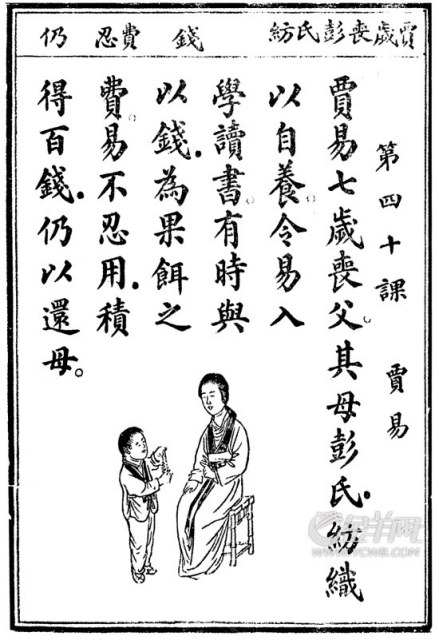 賈歲喪彭氏紡 錢 費忍 仍
第四十課 賈易
賈易七歲喪父。其母彭氏.紡織
以自養。令易入
學讀書。有時與
以錢.為果餌之
費。易不忍用.積
得百錢.仍以還母。
金羊网
WWW.YCWB.COM